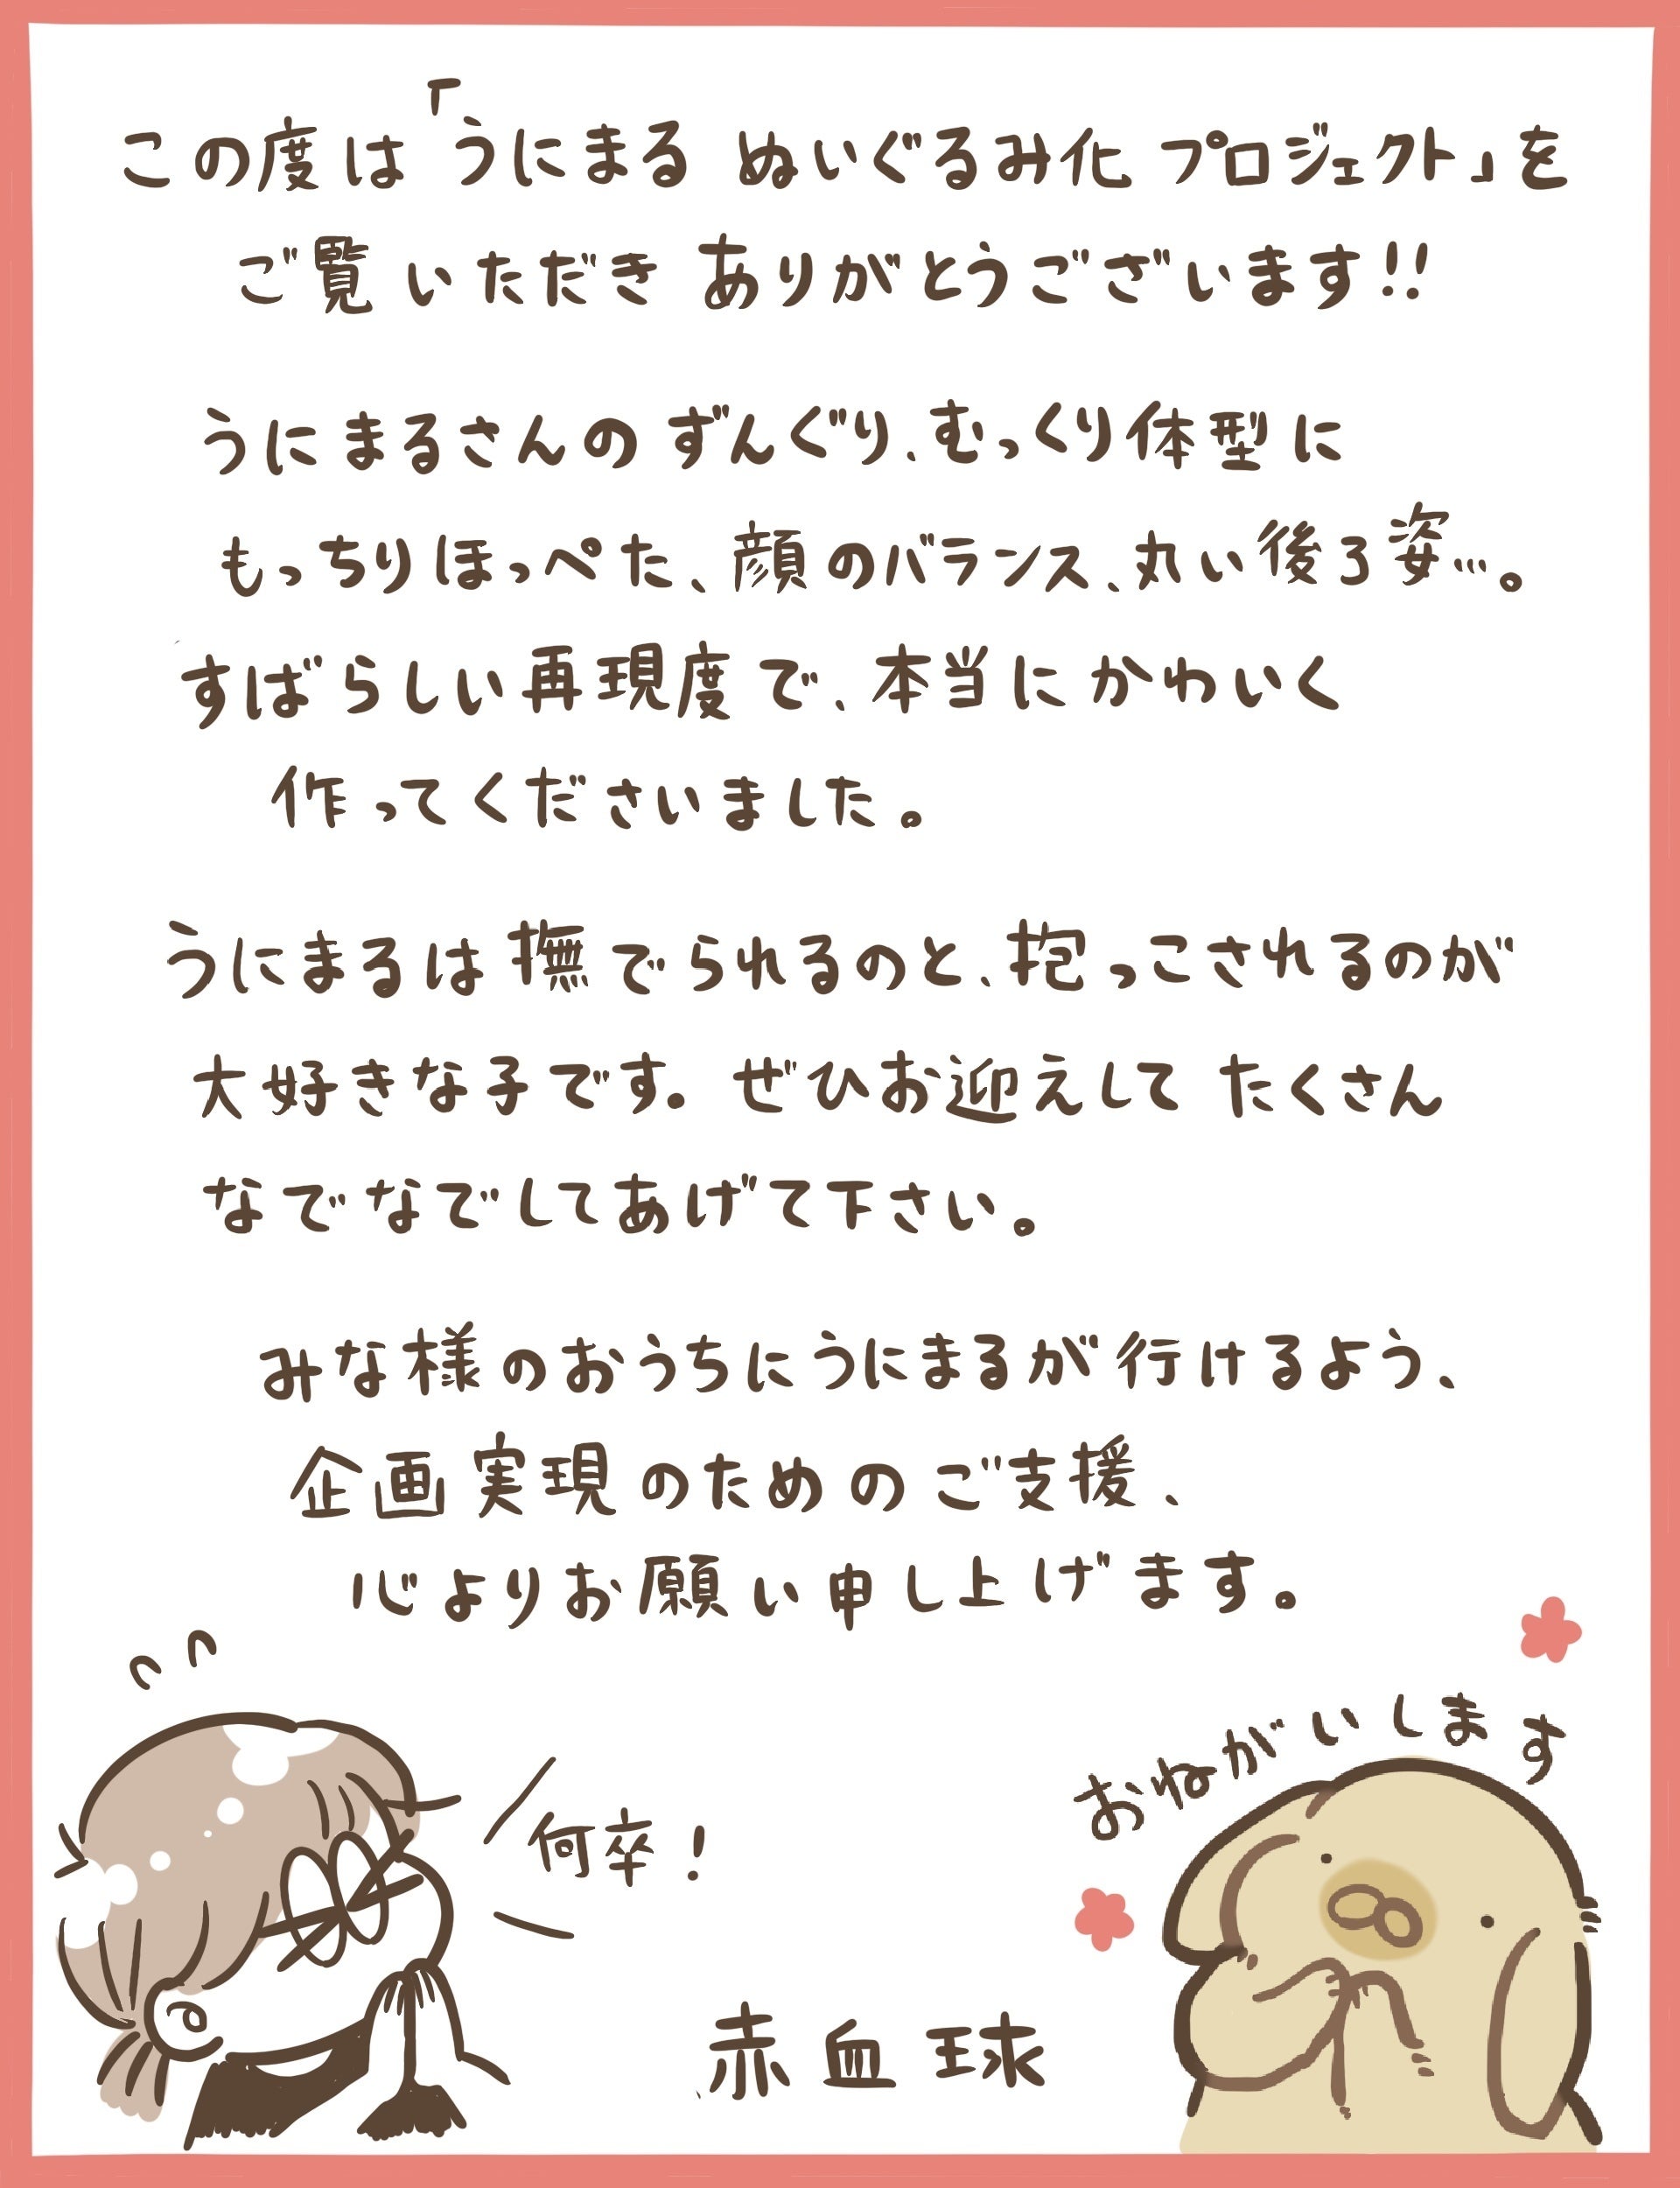 この度は「うにまる ぬいぐるみ化 プロジェクト」を
ご覧いただき ありがとうございます!!
うにまるさんの ずんぐり、むっくり体型に
もっちりほっぺた、顔のバランス、丸い後ろ姿…。
すばらしい再現度で、本当にかわいく
作ってくださいました。
うにまるは撫でられるのと、抱っこされるのが
大好きな子です。ぜひお迎えして たくさん
なでなでしてあげて下さい。
みな様のおうちにうにまるが行けるよう、
企画実現のためのご支援、
心よりお願い申し上げます。
おねがいします
何卒!
赤血球